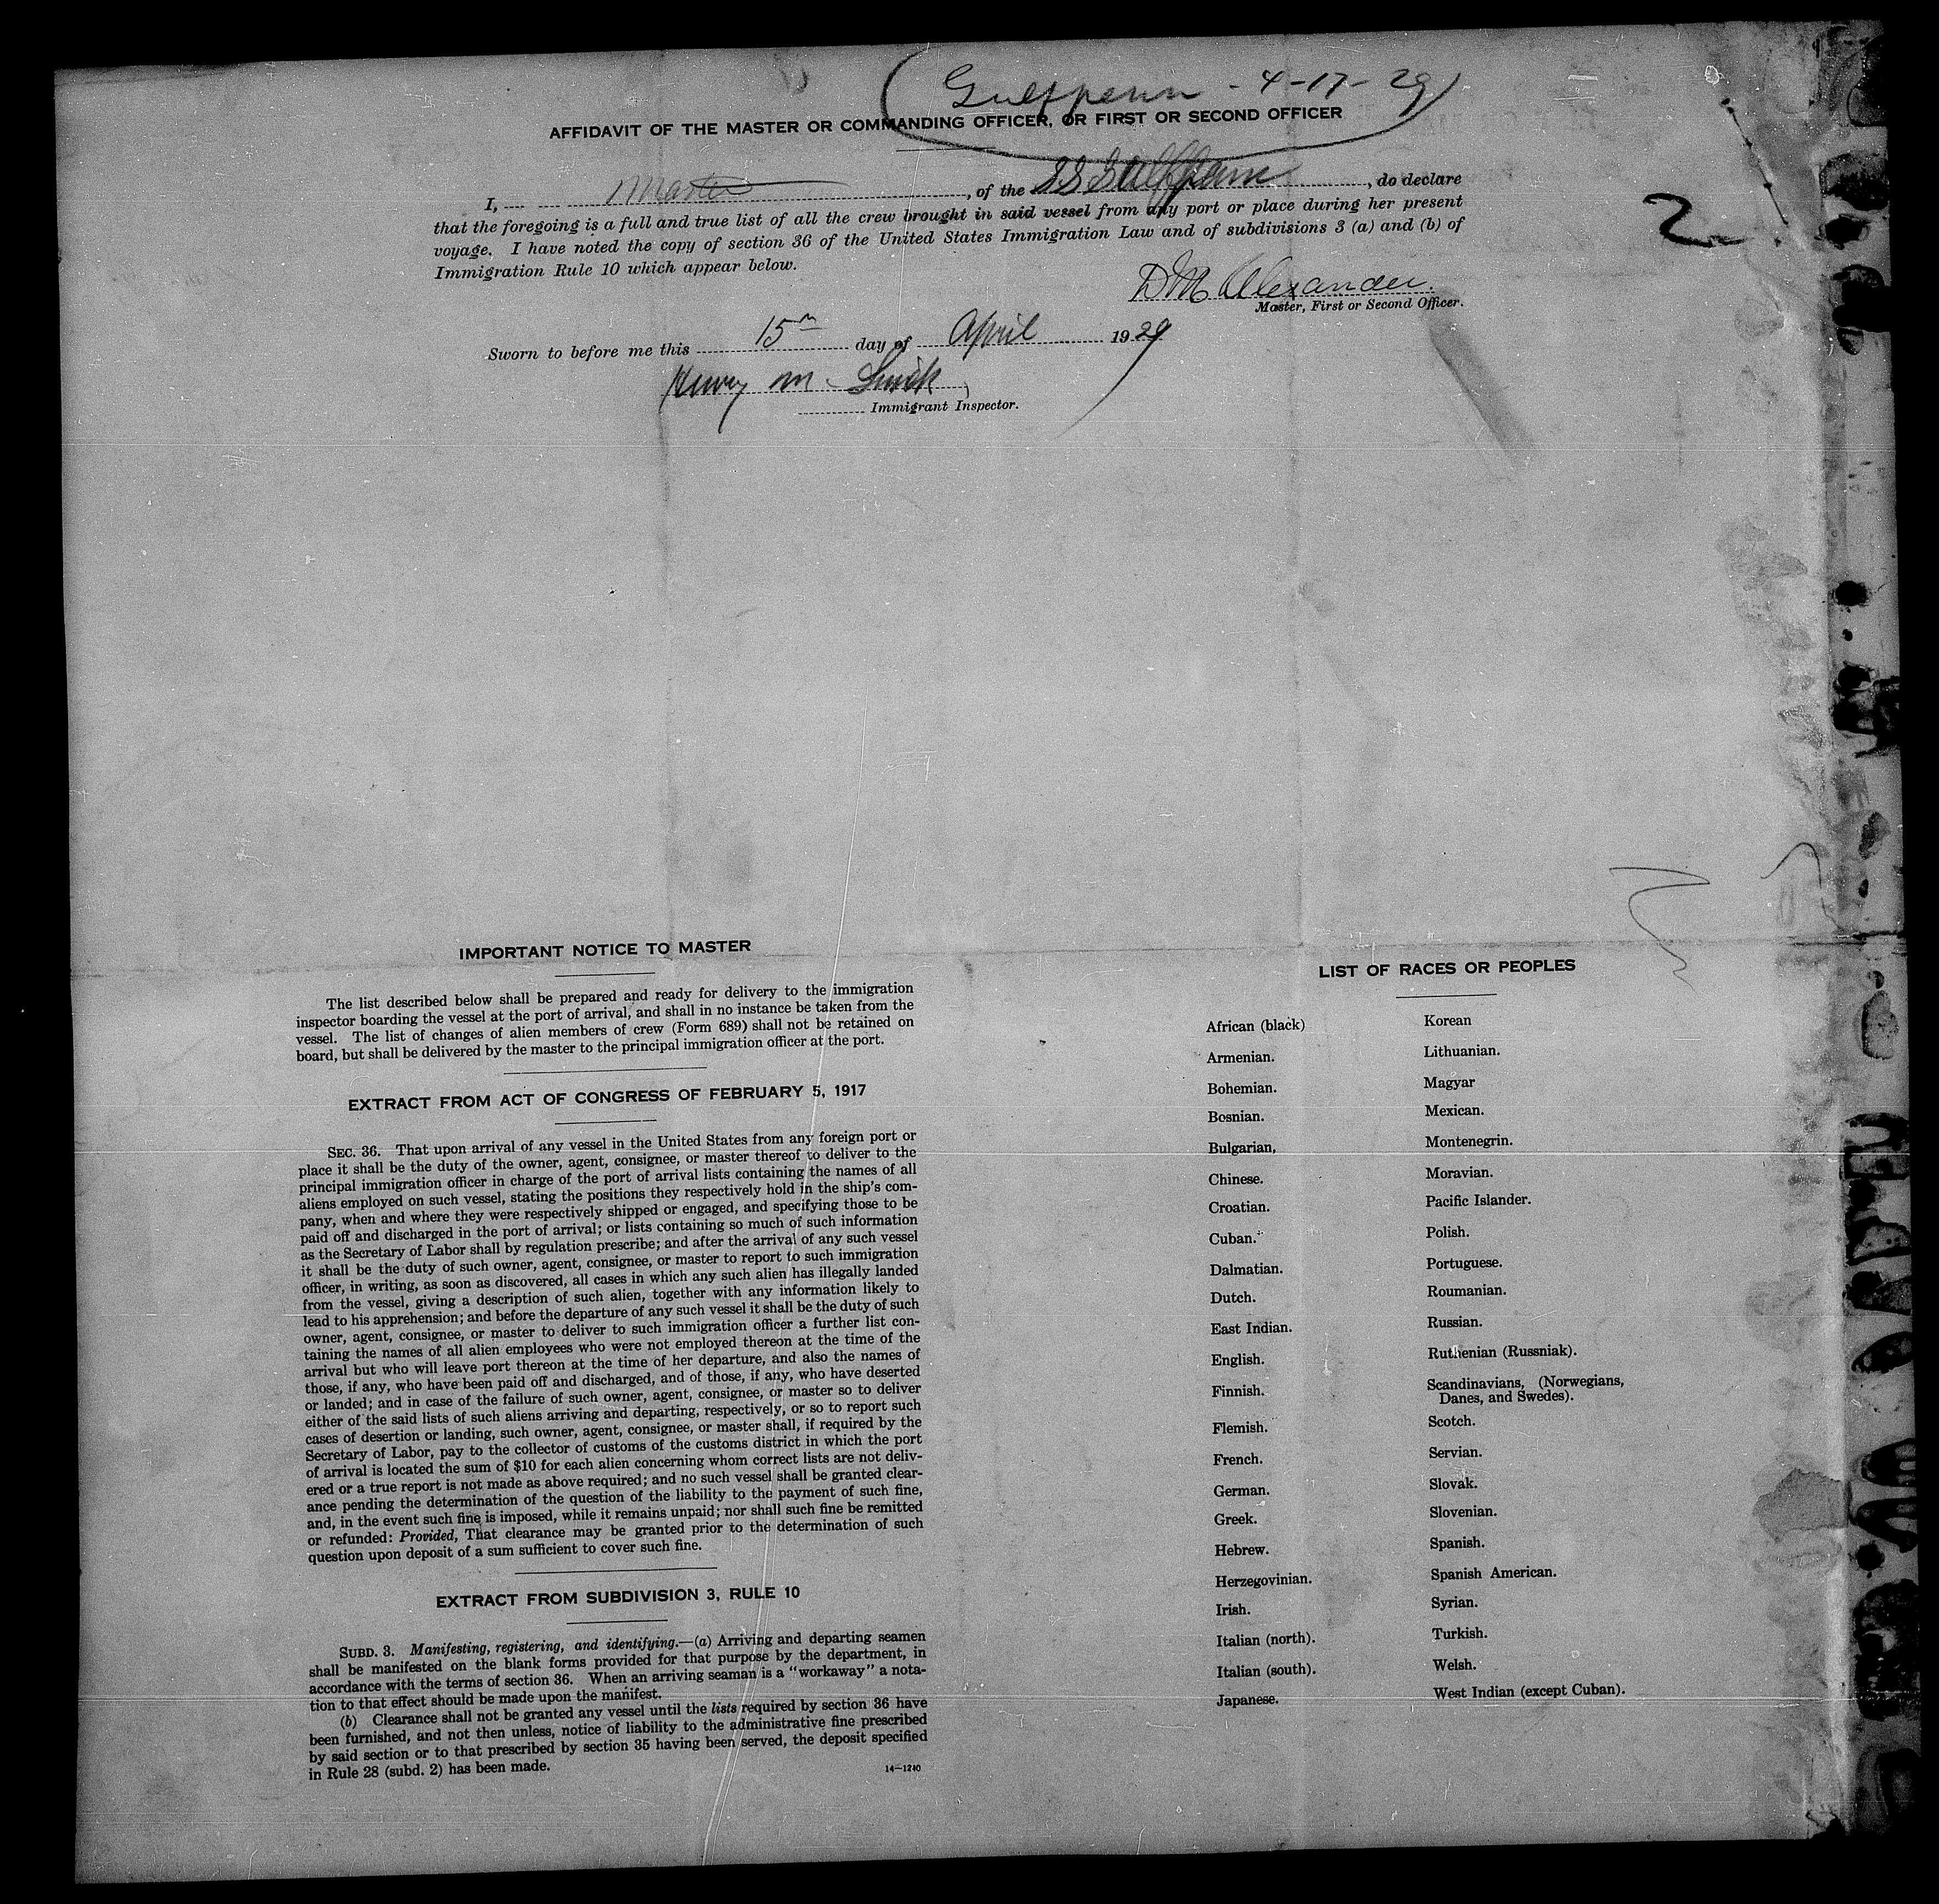 Gulfpenn - 4-17-29
AFFIDAVIT OF THE MASTER OR COMMANDING OFFICER, OR FIRST OR SECOND OFFICER
I, Master, of the SS Gulfpenn, do declare
that the foregoing is a full and true list of all the crew brought in said vessel from any port or place during her present
voyage. I have noted the copy of section 36 of the United States Immigration Law and of subdivisions 3 (a) and (b) of
Immigration Rule 10 which appear below.
2
D M Alexander.
Master, First or Second Officer.
Sworn to before me this 15th day of April 1929
Henry M.
Immigrant Inspector.
IMPORTANT NOTICE TO MASTER
The list described below shall be prepared and ready for delivery to the immigration
inspector boarding the vessel at the port of arrival, and shall in no instance be taken from the
vessel. The list of changes of alien members of crew (Form 689) shall not be retained on
board, but shall be delivered by the master to the principal immigration officer at the port.
EXTRACT FROM ACT OF CONGRESS OF FEBRUARY 5, 1917
SEC. 36. That upon arrival of any vessel in the United States from any foreign port or
place it shall be the duty of the owner, agent, consignee, or master thereof to deliver to the
principal immigration officer in charge of the port of arrival lists containing the names of all
aliens employed on such vessel, stating the positions they respectively hold in the ship's com-
pany, when and where they were respectively shipped or engaged, and specifying those to be
paid off and discharged in the port of arrival; or lists containing so much of such information
as the Secretary of Labor shall by regulation prescribe; and after the arrival of any such vessel
it shall be the duty of such owner, agent, consignee, or master to report to such immigration
officer, in writing, as soon as discovered, all cases in which any such alien has illegally landed
from the vessel, giving a description of such alien, together with any information likely to
lead to his apprehension; and before the departure of any such vessel it shall be the duty of such
owner, agent, consignee, or master to deliver to such immigration officer a further list con-
taining the names of all alien employees who were not employed thereon at the time of the
arrival but who will leave port thereon at the time of her departure, and also the names of
those, if any, who have been paid off and discharged, and of those, if any, who have deserted
or landed; and in case of the failure of such owner, agent, consignee, or master so to deliver
either of the said lists of such aliens arriving and departing, respectively, or so to report such
cases of desertion or landing, such owner, agent, consignee, or master shall, if required by the
Secretary of Labor, pay to the collector of customs of the customs district in which the port
of arrival is located the sum of $10 for each alien concerning whom correct lists are not deliv-
ered or a true report is not made as above required; and no such vessel shall be granted clear-
ance pending the determination of the question of the liability to the payment of such fine,
and, in the event such fine is imposed, while it remains unpaid; nor shall such fine be remitted
or refunded: Provided, That clearance may be granted prior to the determination of such
question upon deposit of a sum sufficient to cover such fine.
EXTRACT FROM SUBDIVISION 3, RULE 10
SUBD. 3. Manifesting, registering, and identifying.—(a) Arriving and departing seamen
shall be manifested on the blank forms provided for that purpose by the department, in
accordance with the terms of section 36. When an arriving seaman is a "workaway" a nota-
tion to that effect should be made upon the manifest.
(b) Clearance shall not be granted any vessel until the lists required by section 36 have
been furnished, and not then unless, notice of liability to the administrative fine prescribed
by said section or to that prescribed by section 35 having been served, the deposit specified
in Rule 28 (subd. 2) has been made.
14—1240
LIST OF RACES OR PEOPLES
African (black)
Armenian.
Bohemian.
Bosnian.
Bulgarian,
Chinese.
Croatian.
Cuban.
Dalmatian.
Dutch.
East Indian.
English.
Finnish.
Flemish.
French.
German.
Greek.
Hebrew.
Herzegovinian.
Irish.
Italian (north).
Italian (south).
Japanese.
Korean
Lithuanian.
Magyar
Mexican.
Montenegrin.
Moravian.
Pacific Islander.
Polish.
Portuguese.
Roumanian.
Russian.
Ruthenian (Russniak).
Scandinavians, (Norwegians,
Danes, and Swedes).
Scotch.
Servian.
Slovak.
Slovenian.
Spanish.
Spanish American.
Syrian.
Turkish.
Welsh.
West Indian (except Cuban).